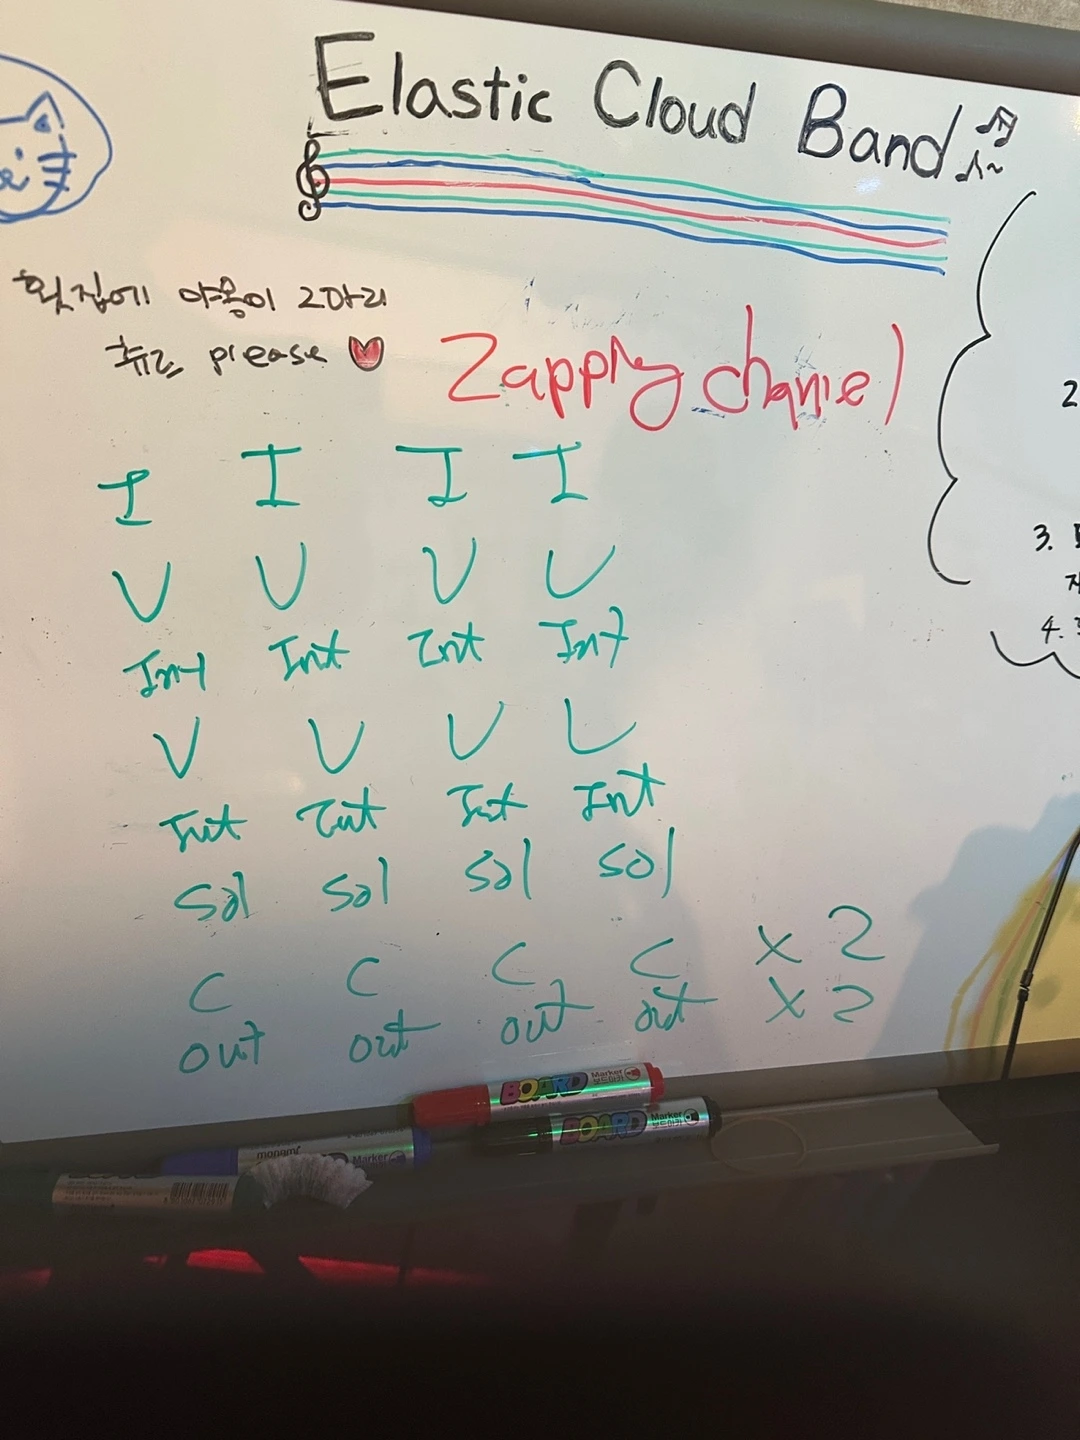 Elastic Cloud Band
횟집에 야옹이 2마리
츄르 please
Zapply channel
I I I I
V V V V
Int Int Int Int
V V V V
Int Int Int Int
Sol Sol Sol Sol
C C C C x 2
out out out out x 2
2
3.
4.
BOARD Marker 보드마카
BOARD Marker 보드마카
monami Marker